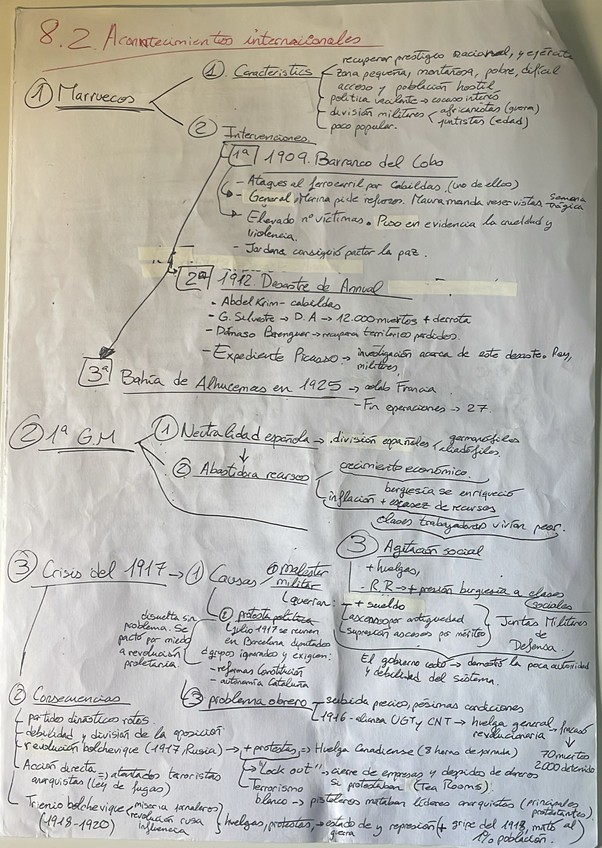 8.2. Acontecimientos internacionales
① Marruecos
① Características
recuperar prestigio nacional, y ejército
zona pequeña, montañosa, pobre, difícil
acceso y población hostil
política vacilante → escaso interés
división militares
africanistas (guerra)
juntistas (edad)
poco popular.
② Intervenciones
1ª 1909. Barranco del Lobo
- Ataques al ferrocarril por Cabildas. (uno de ellos)
- General Marina pide refuerzos. Maura manda reservistas
Semana
trágica
Elevado nº víctimas. Puso en evidencia la crueldad y
violencia.
- Jordana consiguió pactar la paz.
2ª 1912. Desastre de Annual
• Abdel Krim - cabildas
• G. Silvestre → D.A → 12.000 muertos + derrota
- Dámaso Berenguer → recupera territorios perdidos.
- Expediente Picasso → investigación acerca de este desastre. Rey,
militares
3ª Bahía de Alhucemas en 1925 → colab Francia
- Fin operaciones → 27
② 1ª G.M
① Neutralidad española → división españoles
germanófilos
aliadófilos.
② Abastidora recursos
crecimiento económico.
burguesía se enriqueció
inflación + escasez de recursos
clases trabajadoras vivían peor.
③ Agitación social
+ huelgas,
- R.R → + presión burguesía a clases
sociales
③ Crisis del 1917 → ① Causas
① malestar
militar
(querían:
+ sueldo
ascensos por antigüedad
supresión ascensos por méritos
Juntas Militares
de
Defensa
El gobierno cedió → demostró la poca autoridad
y debilidad del sistema.
② protesta política
julio 1917 se reúnen
en Barcelona diputados
d grupos ignorados y exigían:
- reformas Constitución
- autonomía Cataluña
disuelta sin
problema. Se
pactó por miedo
a revolución
proletaria.
③ problema obrero
subida precios, pésimas condiciones
1916 - alianza UGT y CNT → huelga general → fracasó
revolucionaria
70 muertos
2000 detenidos
② Consecuencias
- partidos dinásticos rotos.
- debilidad y división de la oposición.
- revolución bolchevique (1917, Rusia) → + protestas, => Huelga Canadiense (8 horas de jornada)
"Lock out" → cierre de empresas y despidos de obreros
si protestaban (Tea Rooms)
Acción directa => atentados terroristas
anarquistas (Ley de fugas)
Terrorismo
blanco → pistoleros mataban líderes anarquistas (principales
protestantes).
Trienio bolchevique
(1918-1920)
miseria jornaleros
revolución rusa
influencia
huelgas, protestas, → estado de
guerra
y represión (+ gripe del 1918, mató al
1% población.